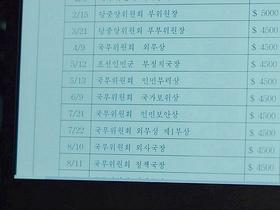 2/15 당중앙위원회 부위원장 $ 5000
3/21 당중앙위원회 부부위원장 $ 4500
4/9 국무위원회 외무상 $ 4500
5/12 조선인민군 부정치국장 $ 4500
5/13 국무위원회 인민무력상 $ 4500
6/9 국무위원회 국가보위상 $ 4500
7/21 국무위원회 인민보안상 $ 4500
7/22 국무위원회 외무상 제1부상 $ 4500
8/10 국무위원회 외사국장 $ 4500
8/11 국무위원회 정책국장 $ 4500